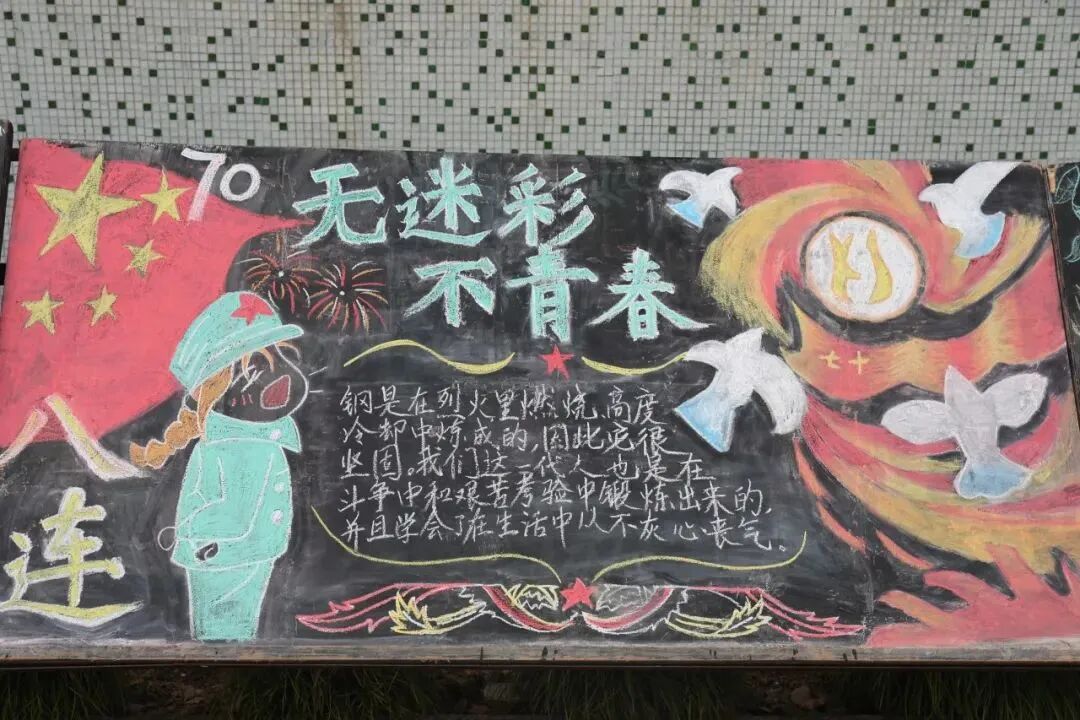 70
无迷彩
不青春
八
连
七十
钢是在烈火里燃烧、高度
冷却中炼成的,因此它很
坚固。我们这一代人也是在
斗争中和艰苦考验中锻炼出来的,
并且学会了在生活中从不灰心丧气。